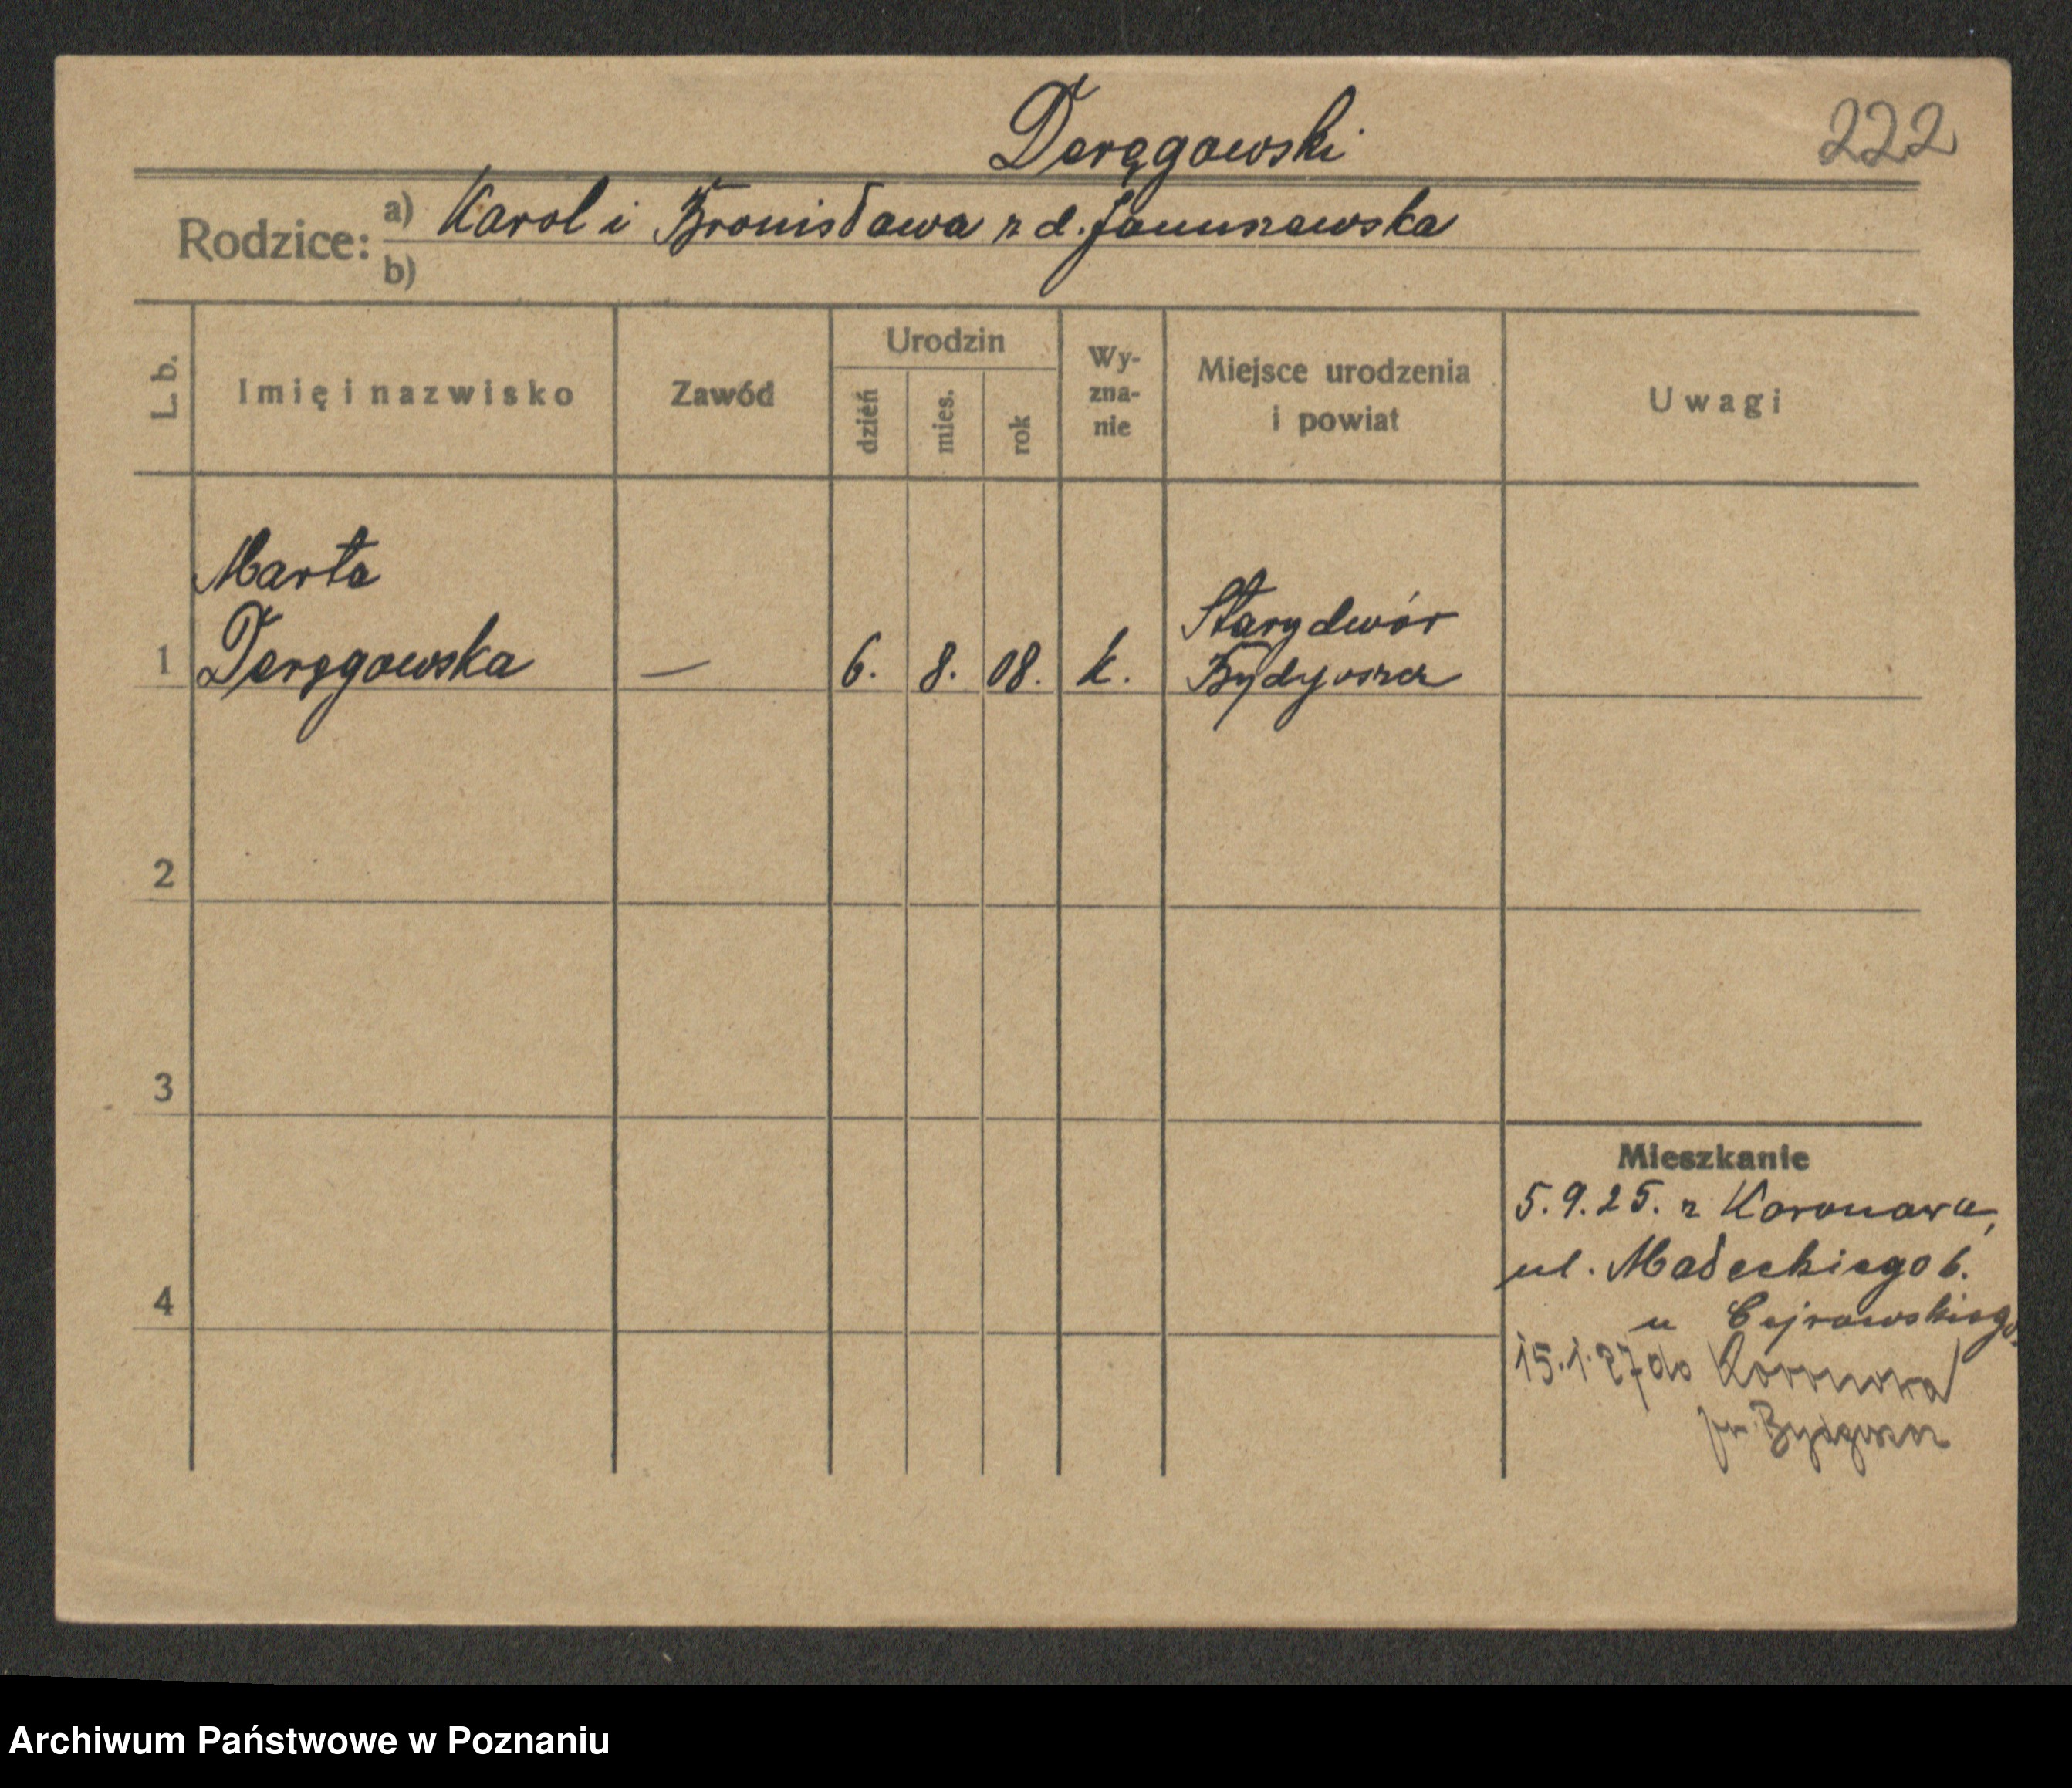 Deręgowski
222
Rodzice: a) Karol i Bronisława z d. Januszewska
b)
L. b. Imię i nazwisko Zawód Urodzin dzień mies. rok Wy-zna-nie Miejsce urodzenia i powiat Uwagi
Marta
1 Deręgowska — 6. 8. 08. k. Starydwór
Bydgoszcz
2
3
4
Mieszkanie
5.9.25. z Koronowa,
ul. Małeckiego 6.
u Cejrowskiego.
15.1.27 do Koronowa
Bydgoszcz
Archiwum Państwowe w Poznaniu